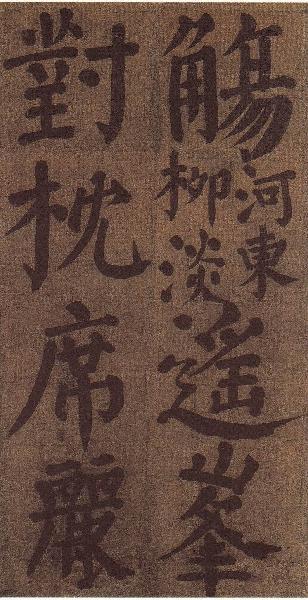 觴河東柳淡遥峯
對枕席麗